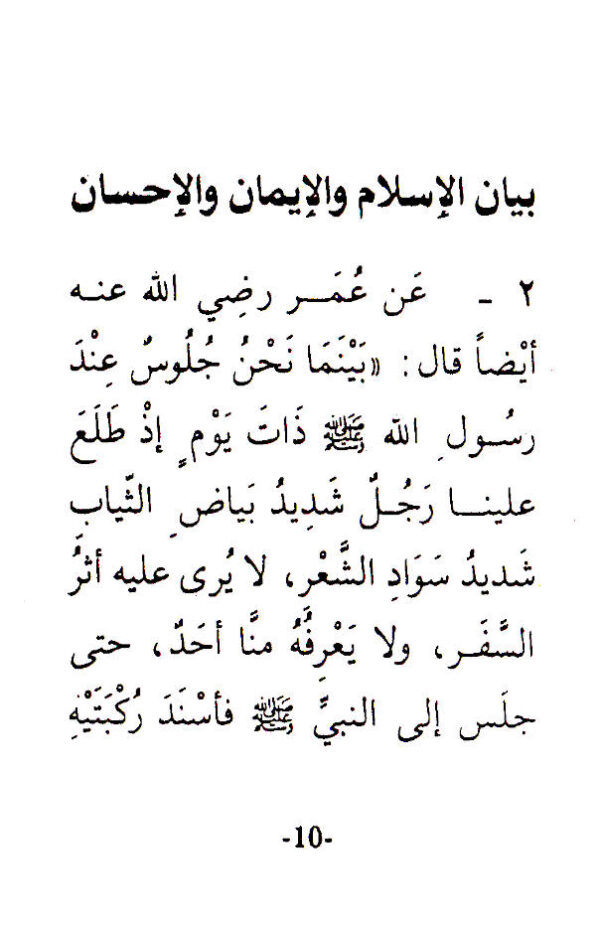 بيان الإسلام والإيمان والإحسان
٢ - عَن عُمَـر رضِي الله عنـه
أيْضاً قال: «بَيْنَمَا نَحْنُ جُلُوسٌ عِنْدَ
رسُـولِ الله ﷺ ذَاتَ يَوْمٍ إذْ طَلَعَ
علينـا رَجُـلٌ شَدِيدُ بَيَاضِ الثّيابِ
شَديدُ سَوَادِ الشَّعْرِ، لا يُرى عليه أثرُ
السَّفَـر، ولا يَعْرِفُهُ منَّا أحَدٌ، حتى
جلَس إلى النبيِّ ﷺ فأسْنَدَ رُكْبَتَيْهِ
-10-